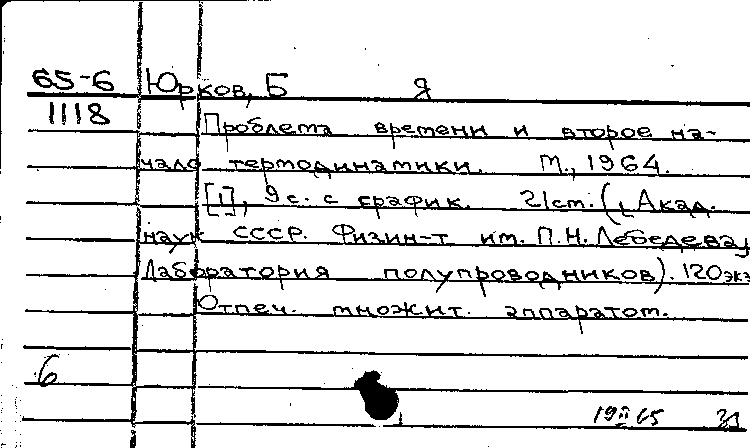 65-6 Юрков, Б Я
1118 Проблема времени и второе на-
чало термодинамики. М., 1964.
[1], 9 с. с график. 21 см. (Акад.
наук СССР. Физ. ин-т им. П.Н. Лебедева,
Лаборатория полупроводников). 120 экз
Отпеч. множит. аппаратом.
6
19 II 65